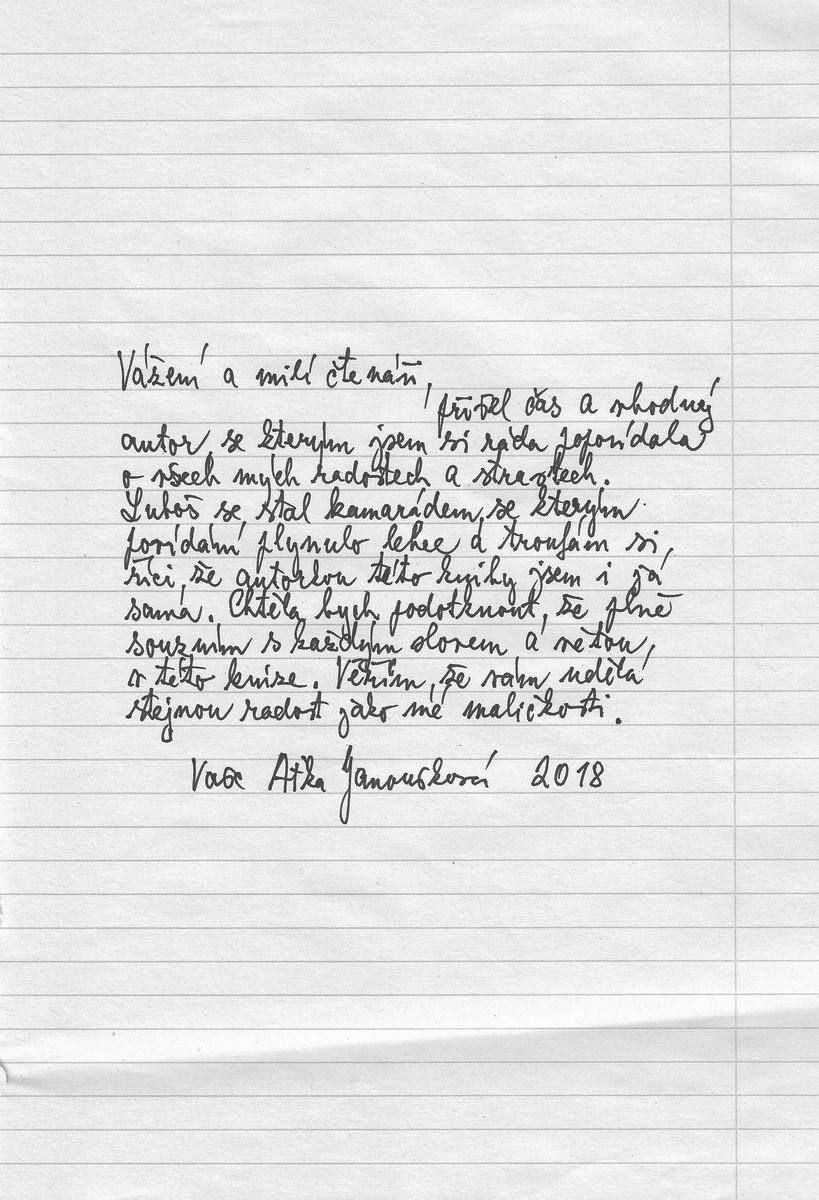 Vážení a milí čtenáři,
přišel čas a vhodný
autor, se kterým jsem si ráda popovídala
o všech mých radostech a strastech.
Luboš se stal kamarádem, se kterým
povídání plynulo lehce a troufám si,
říci, že autorkou této knihy jsem i já
sama. Chtěla bych podotknout, že plně
souzním s každým slovem a větou,
v této knize. Věřím, že vám udělá
stejnou radost jako mé maličkosti.
Vaše Aťka Janoušková 2018